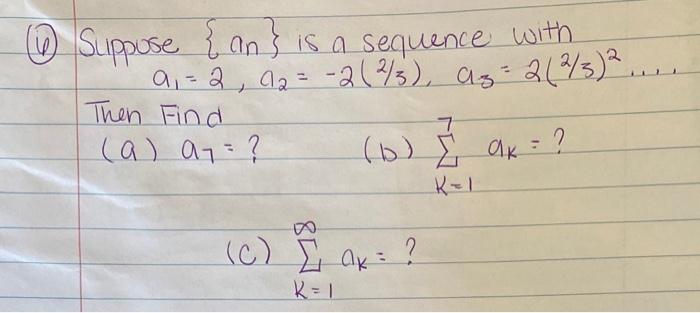 (6) Suppose {an} is a sequence with
a₁ = 2, a₂ = -2(2/3), a₃ = 2(2/3)² ....
Then Find
(a) a₇ = ? (b) 7 Σ K=1 aₖ = ?
(c) ∞ Σ K=1 aₖ = ?